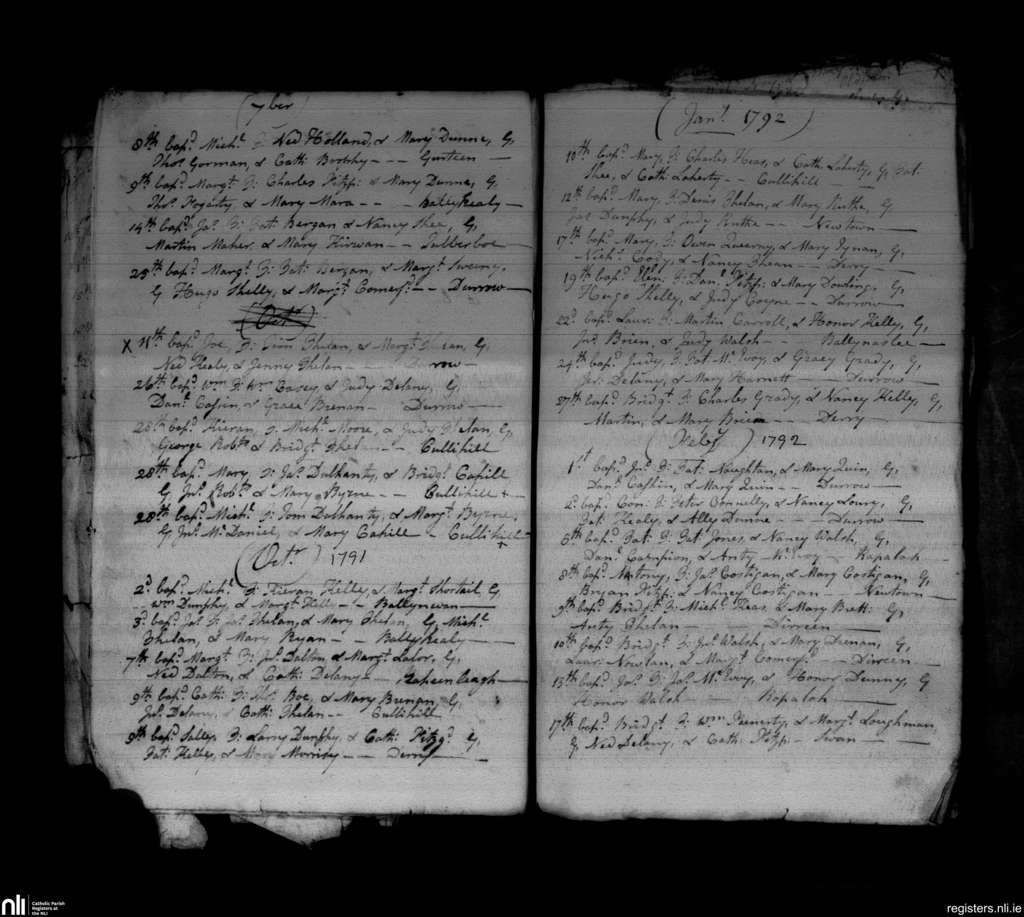 (7ber)
8th bapd Michl F: Ned Holland, & Mary Dunne, G,
Thos Gorman, & Cath: Brophy - - - Gurteen -
9th bapd Margt F: Charles Fitzp: & Mary Dunne, G,
Thos Fogarty, & Mary Mara - - - BallyKealy -
14th bapd Jas F: Pat: Bergan & Nancy Shee, G,
Martin Maher, & Mary Kirwan - - Tubberboe
25th bapd Margt F: Pat: Bergan, & Margt Sweeny,
G Hugo Shelly, & Margt Comerfd - - Durrow -
(Octr)
X 11th bapd Joe, F: Tim Phelan, & Margt G,
Ned Healy, & Jenny Phelan -
26th bapd Wm F: Wm Casey, & Judy Delany, G,
Danl Cashin, & Grace Brenan - Durrow -
28th bapd Kieran, F: Michl Moore, & Judy G,
George Robts & Bridgt Phelan - - Cullihill
28th bapd Mary, F: Jas Dulhanty, & Bridgt Cahill
G, Jno Robts & Mary Byrne - - Cullihill +
28th bapd Michl F: Tom Dulhanty, & Margt Byrne,
G Jno McDaniel, & Mary Cahill - Cullihill
+
(Octr) 1791
2d bapd Michl F: Kieran Kelly, & Margt Shortall, G,
Wm Dunphy, & Margt Kelly - - Ballynevan
3d bapd Jas F: Jas Phelan, & Mary Phelan, G, Michl
Phelan, & Mary Ryan - - BallyKealy -
7th bapd Margt F: Jas Dalton, & Margt Lalor, G,
Ned Dalton, & Cath: Delany -
9th bapd Cath: F: Thos Boe, & Mary Brenan, G,
Jas Delany, & Cath: Phelan - - Cullihill
9th bapd Sally, F: Larry Dunphy, & Cath: Fitzgd G,
Pat: Kelly, & Mary Morrissy - - Derry -
(Janl 1792)
10th bapd Mary, F: Charles Heas, & Cath: Laherty, G, Pat:
Shee, & Cath: Laherty - - Cullihill -
12th bapd Mary, F: Denis Phelan, & Mary Ruthe, G,
Jas Dunphy, & Judy Ruthe - Newtown -
17th bapd Mary, F: Owen & Mary Tynan, G,
Michl Cody, & Nancy - Derry -
19th bapd Elen: F: Danl Fitzp: & Mary Dowling, G,
Hugo Shelly, & Judy Coyne - - Durrow -
22d bapd Laur: F: Martin Carroll, & Honor Kelly, G,
Jno Brien, & Judy Walsh - - Ballynaslee -
24th bapd Judy, F: Pat: McEvoy, & Gracy Grady, G,
Jas Delany, & Mary Harnett - - Durrow -
27th bapd Bridgt F: Charles Grady, & Nancy Kelly, G,
Martin, & Mary Brien - Derry
(Feby) 1792
1st bapd Jno F: Pat: Naughtan, & Mary Quin, G,
Danl Cashin, & Mary Quin - - Durrow -
2d bapd Con: F: Peter Connelly, & Nancy Loury, G,
Pat: Healy, & Ally Dunne - - - Durrow -
6th bapd Pat: F: Pat: Jones, & Nancy Walsh, G,
Danl Campion, & Anty McEvoy - Kapalah -
8th bapd Antony, F: Jas Costigan, & Mary Costigan, G,
Bryan Fitzp: & Nancy Costigan - - Newtown
9th bapd Bridgt F: Michl Heas, & Mary Brett: G,
Anty Phelan - Dirreen
10th bapd Bridgt F: Jno Walsh, & Mary Drenan, G,
Laur: Nowlan, & Margt Comerfd - - Dirreen
13th bapd Jas F: Jas McEvoy, & Honor Dunny, G
Honor Walsh - Kapalah
17th bapd Bridgt F: Wm & Margt Loughman,
G, Ned Delany, & Cath: Fitzp: - Swan -
nli
Catholic Parish
Registers at
the NLI
registers.nli.ie